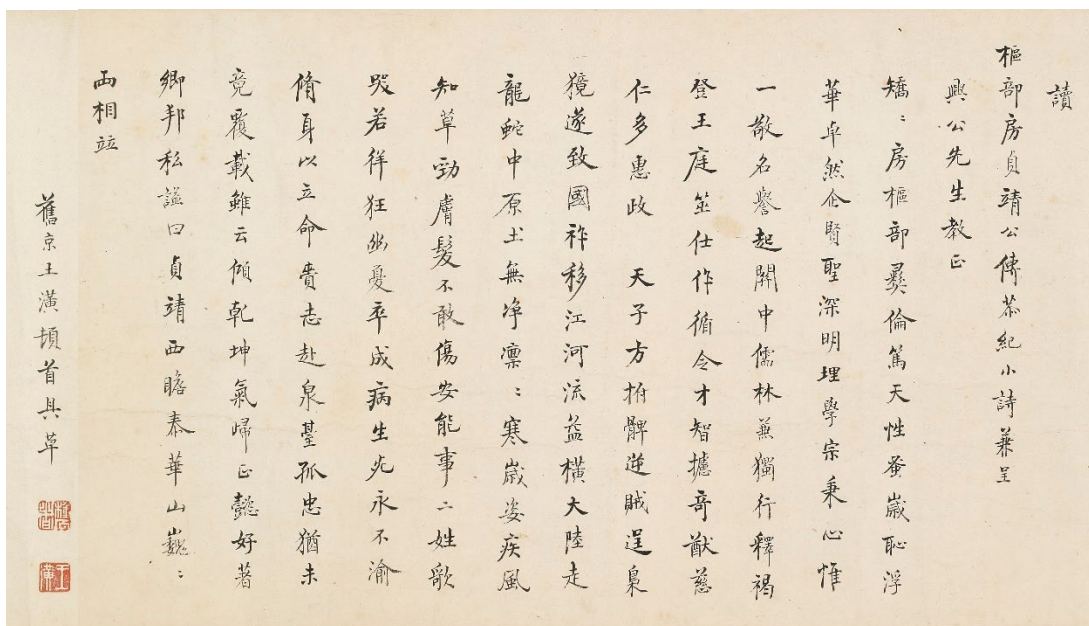 讀
樞部房貞靖公傳恭紀小詩兼呈
興公先生教正
矯〻房樞部彝倫篤天性蚤歲恥浮
華卓然企賢聖深明理學宗秉心惟
一敬名譽起關中儒林兼獨行釋褐
登王庭筮仕作循令才智攄奇猷慈
仁多惠政　天子方拊髀逆賊逞梟
獍遂致國祚移江河流益橫大陸走
龍蛇中原土無凈凜〻寒歲姿疾風
知草勁膚髮不敢傷安能事二姓歌
哭若徉狂幽憂卒成病生死永不渝
脩身以立命賫志赴泉臺孤忠猶未
竟覆載雖云傾乾坤氣歸正懿好著
鄉邦私謚曰貞靖西瞻泰華山巍〻
兩相竝
舊京王潢頓首具草
王潢